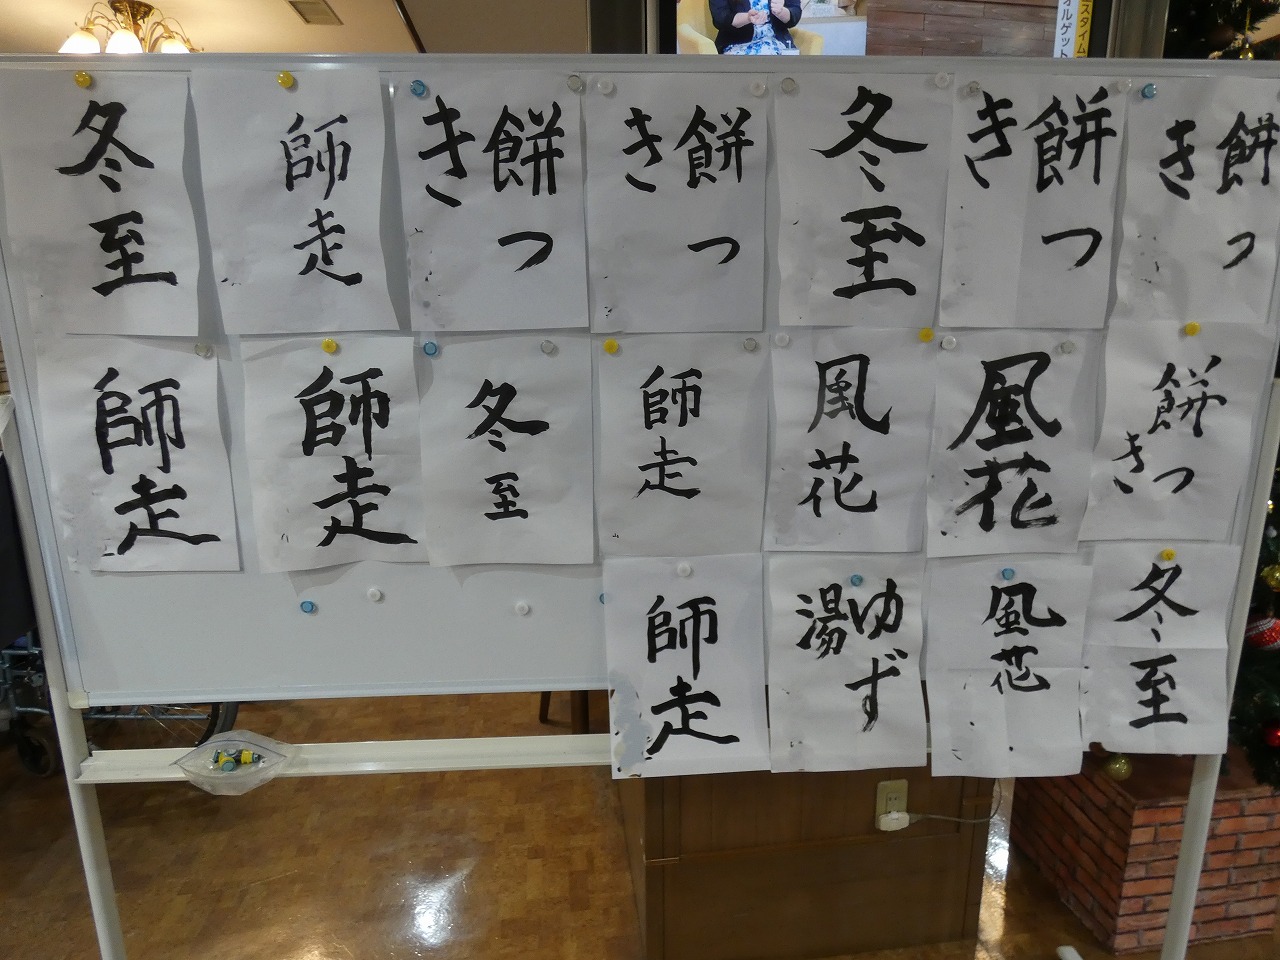 スタイム
オルゲット
冬至
師走
餅つ
き
餅つ
き
冬至
餅つ
き
餅つ
き
師走
師走
冬至
師走
風花
風花
餅つ
き
師走
ゆず
湯
風花
冬至